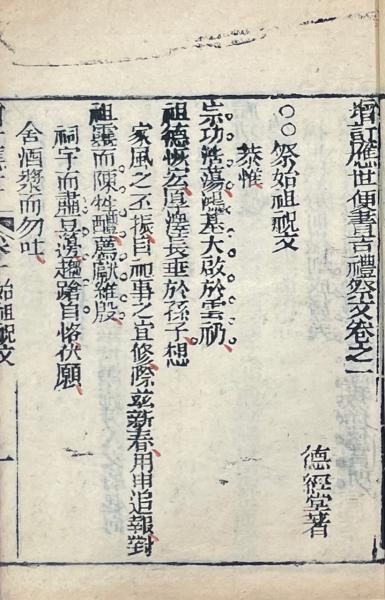 增訂應世便書吉禮祭文卷之一
德經堂著
○○祭始祖祝文
恭惟
宗功浩蕩鴻基大啟於雲礽
祖德恢宏厚澤長垂於孫子想
家風之丕振自祀事之宜修際茲新春用申追報對
祖靈而陳牲醴薦歆雖殷
祠宇而肅豆籩趨蹌自恪伏願
含酒漿而勿吐
始祖祝文
一